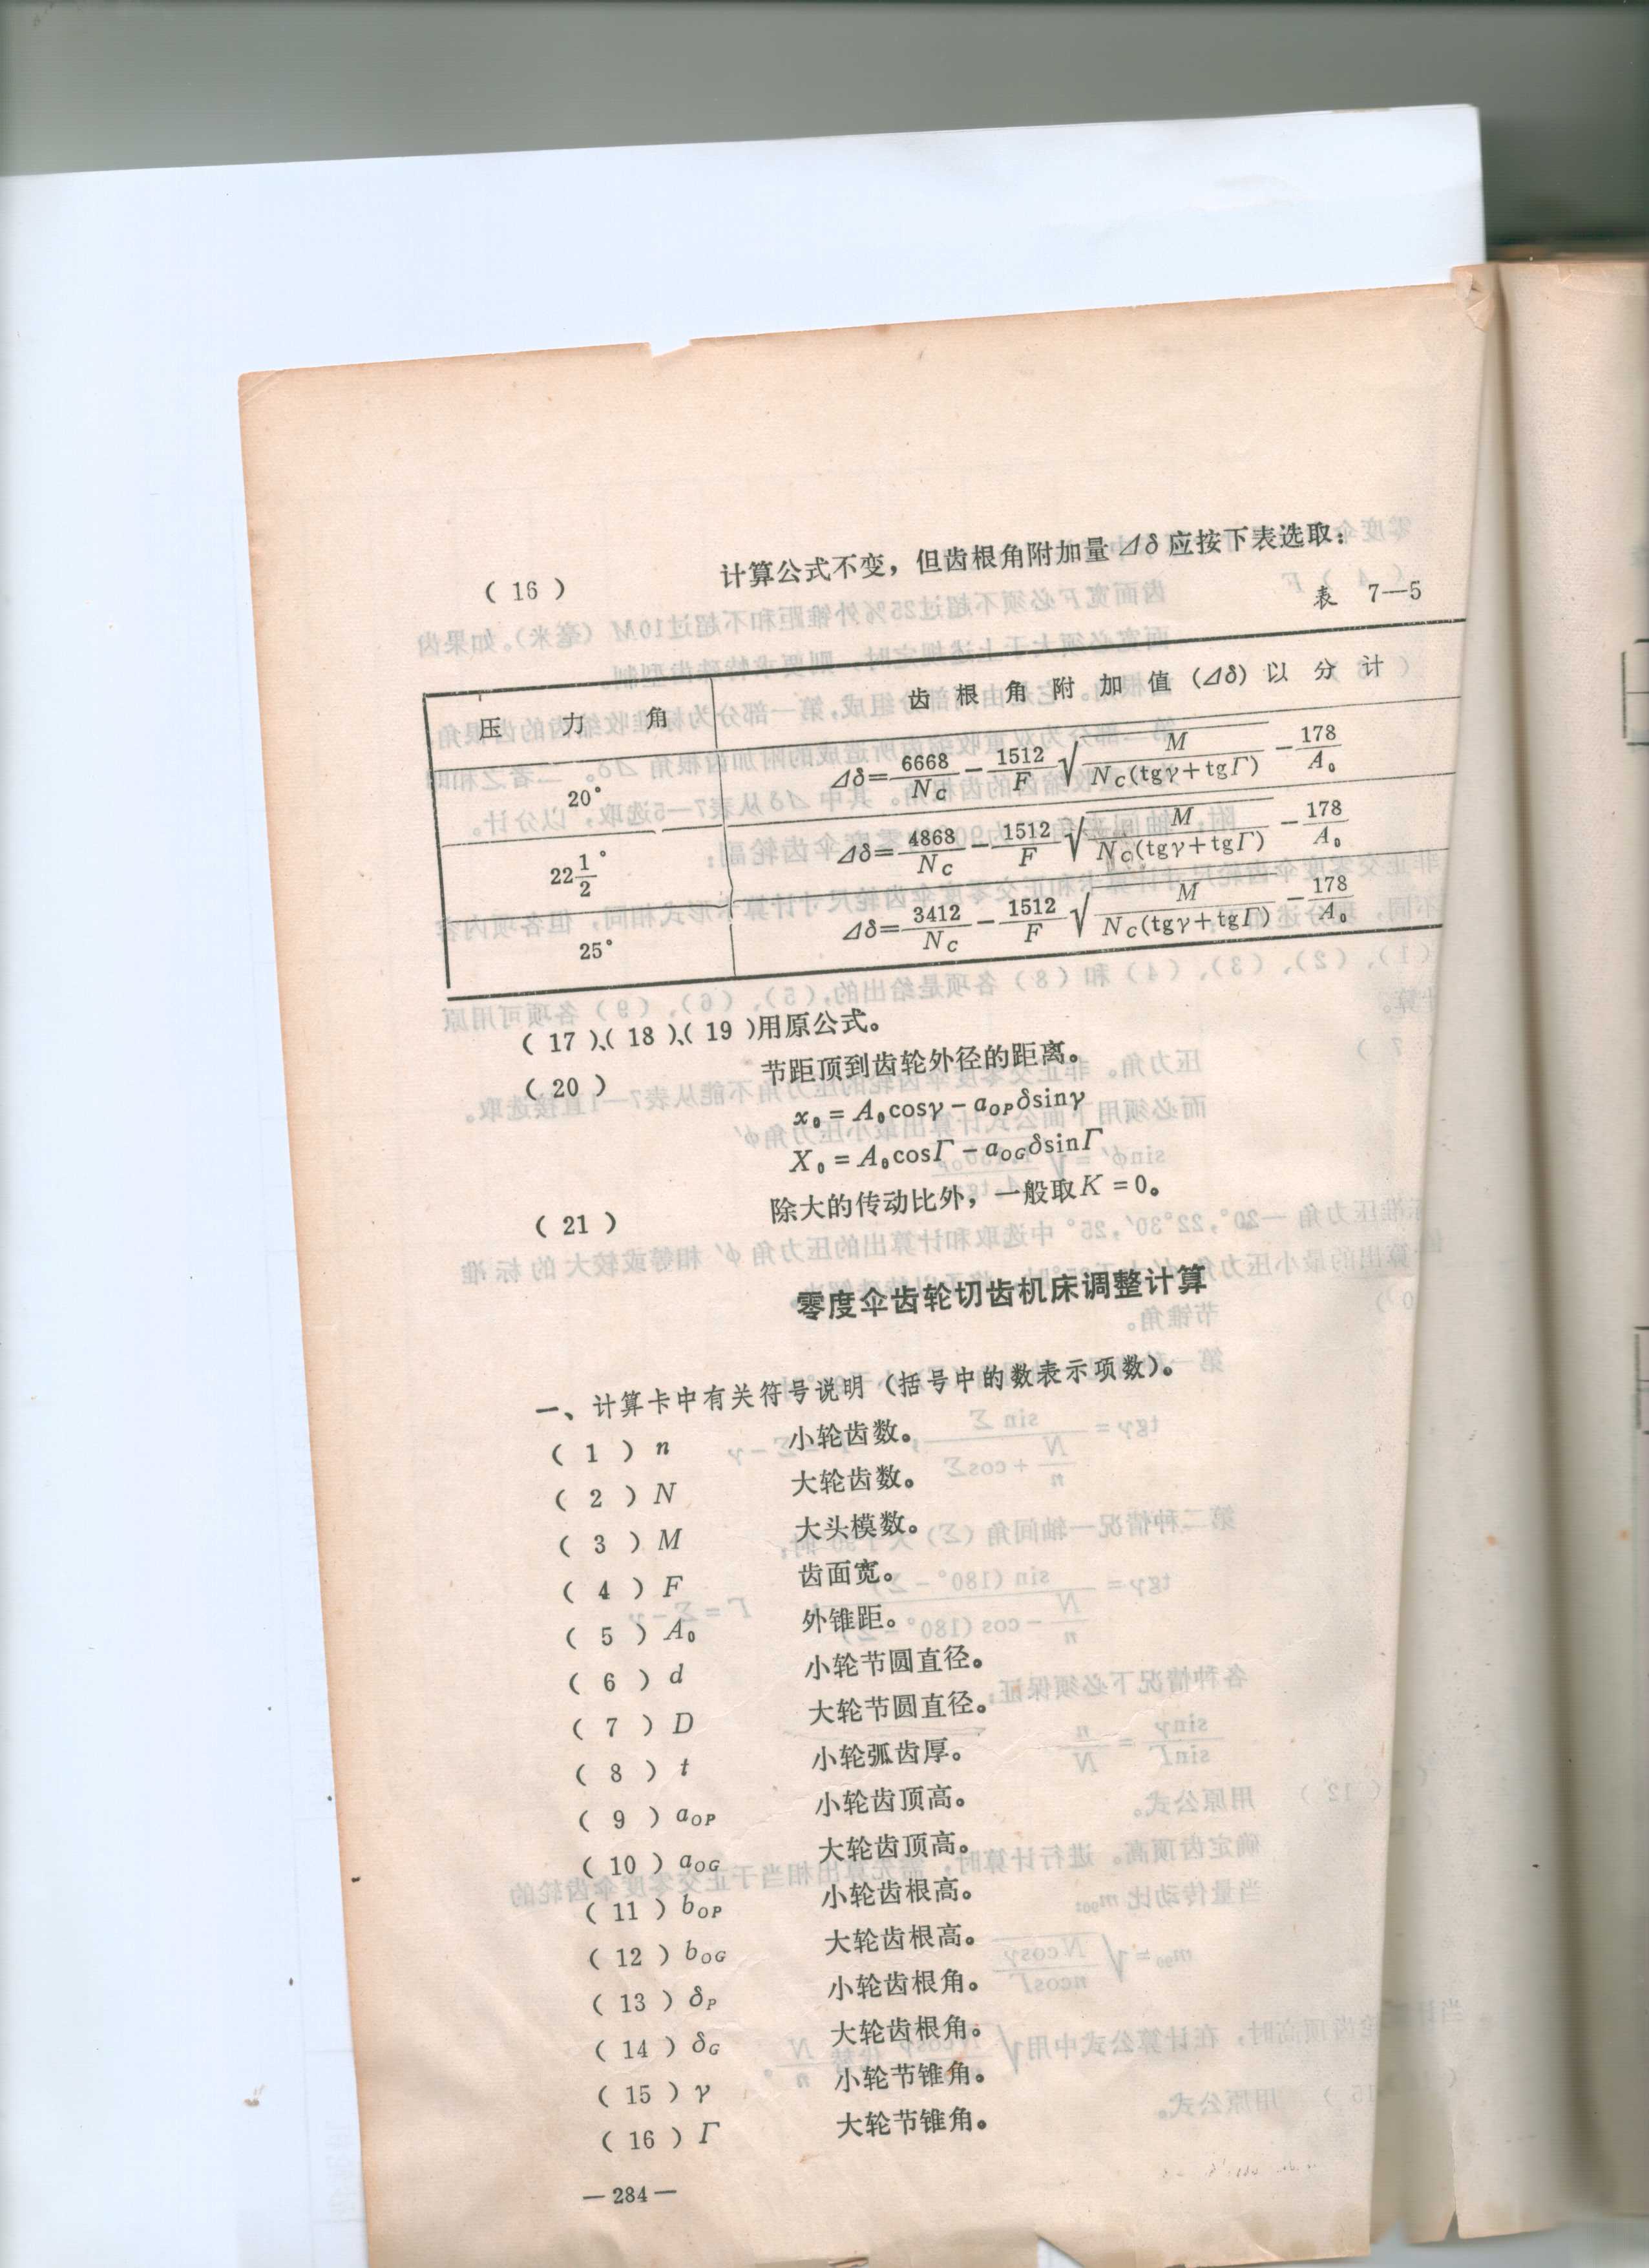 （16） 计算公式不变，但齿根角附加量Δδ应按下表选取：
表 7—5
压 力 角 齿 根 角 附 加 值 (Δδ) 以 分 计
20° Δδ=6668/N_C − 1512/F √(M/(N_C(tgγ+tgΓ))) − 178/A₀
22 1/2° Δδ=4868/N_C − 1512/F √(M/(N_C(tgγ+tgΓ))) − 178/A₀
25° Δδ=3412/N_C − 1512/F √(M/(N_C(tgγ+tgΓ))) − 178/A₀
（17）、（18）、（19）用原公式。
（20） 节距顶到齿轮外径的距离。
x₀=A₀cosγ−a_OPδsinγ
X₀=A₀cosΓ−a_OGδsinΓ
（21） 除大的传动比外，一般取K=0。
零度伞齿轮切齿机床调整计算
一、计算卡中有关符号说明（括号中的数表示项数）。
（1）n 小轮齿数。
（2）N 大轮齿数。
（3）M 大头模数。
（4）F 齿面宽。
（5）A₀ 外锥距。
（6）d 小轮节圆直径。
（7）D 大轮节圆直径。
（8）t 小轮弧齿厚。
（9）a_OP 小轮齿顶高。
（10）a_OG 大轮齿顶高。
（11）b_OP 小轮齿根高。
（12）b_OG 大轮齿根高。
（13）δ_P 小轮齿根角。
（14）δ_G 大轮齿根角。
（15）γ 小轮节锥角。
（16）Γ 大轮节锥角。
—284—